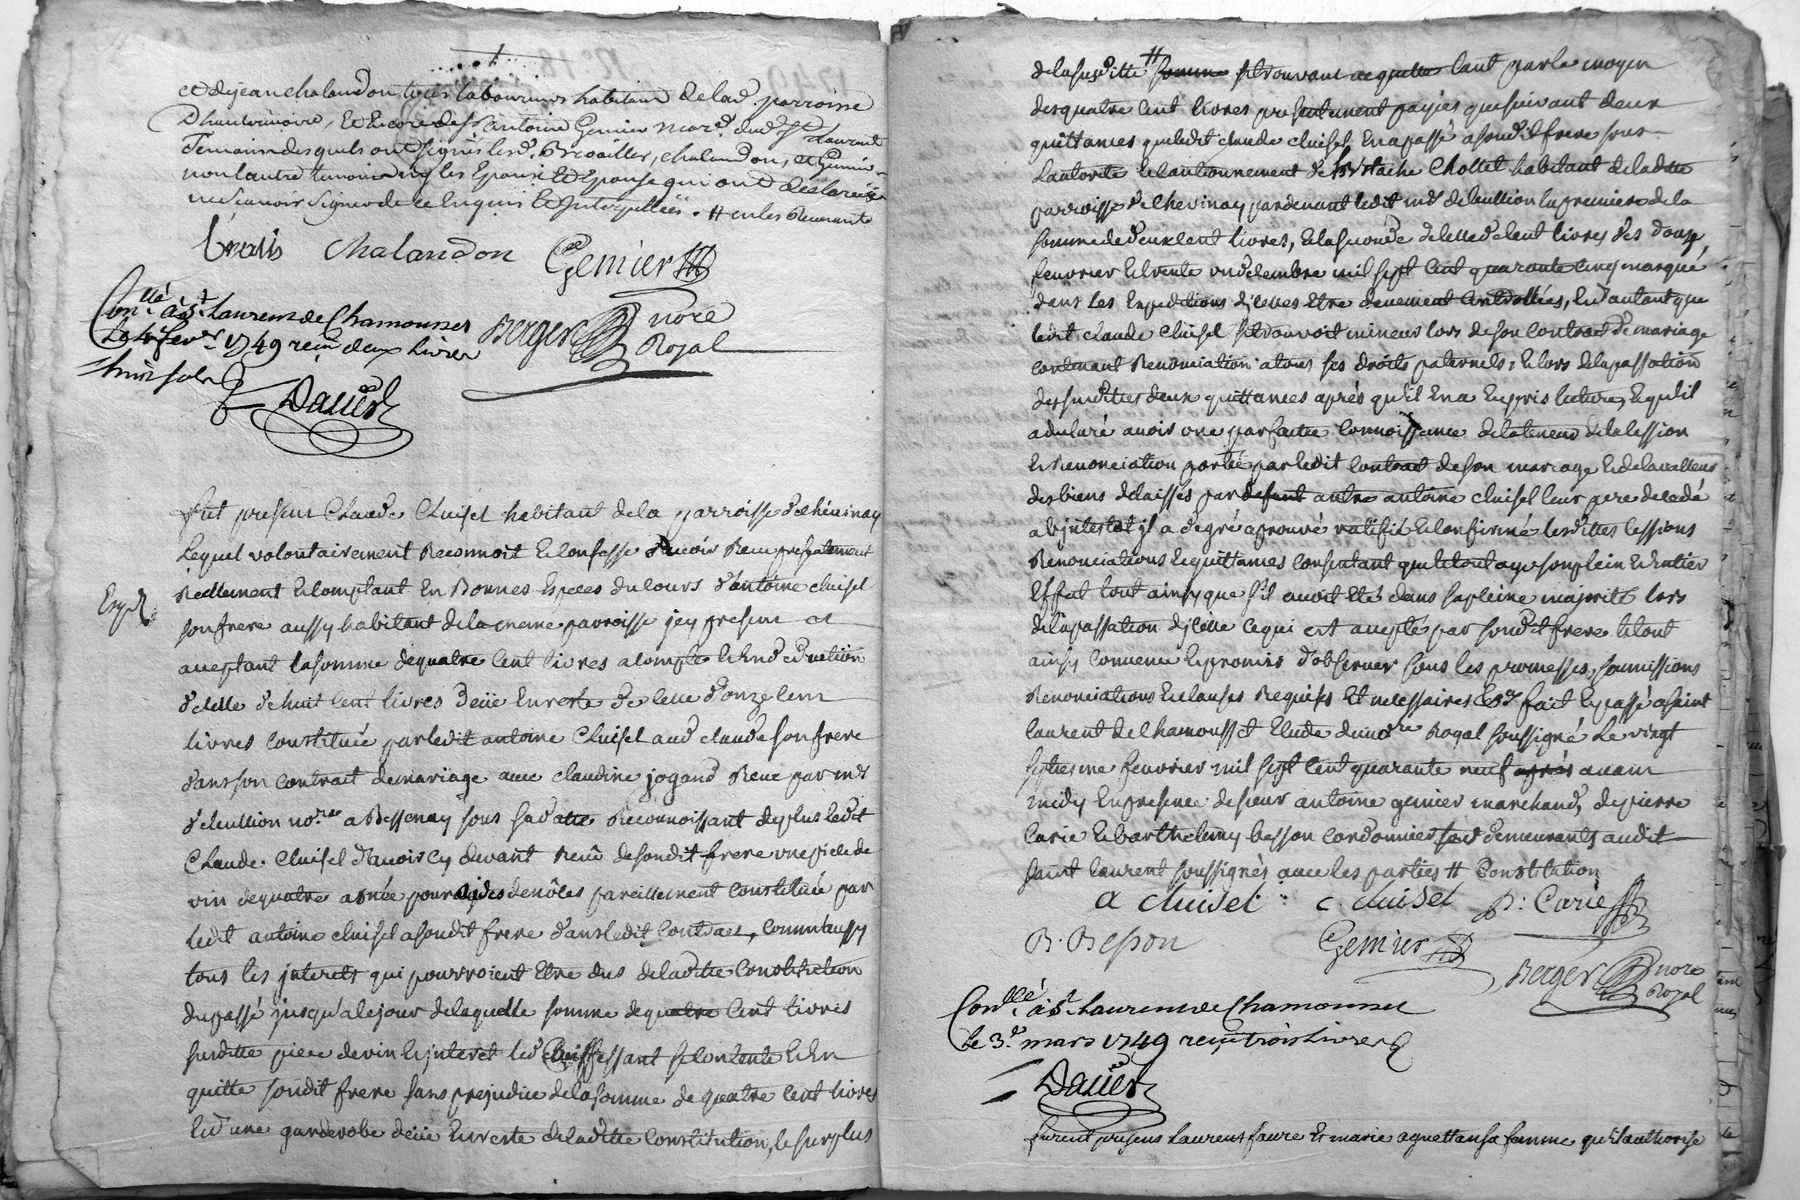 et de jean chalandon tous laboureurs habitans de lad. parroisse
D'hauterivoire, et encore de Sr antoine Genier mard. dud. St Laurent
Temoins desquels ont signés lesd. chalandon, et Genier
non l'autre temoin ny les Epoux et Epouse qui ont declaré
ne scavoir signer de ce enquis et Interpellés.
chalandon Genier
Con.llé à St. Laurens de Chamousset
fevr. 1749 reçu deux livres
Berger nore
Royal
huit sols
Daver
Fut present Claude Cluisel habitant de la parroisse de chevinay
Lequel volontairement Reconnoit et confesse d'avoir Receu presentement
Reellement et comptant En Bonnes Especes du cours d'antoine cluisel
Exped.
son frere aussy habitant de la meme parroisse jcy present et
acceptant la somme de quatre cent livres a compte et En deduction
de celle de huit cent livres deüe En reste de celle d'onze cent
livres constituée par ledit antoine Cluisel aud. claude son frere
dans son contrat de mariage avec claudine jogand Receu par me
nore a Bessenay sous sa datte Reconnoissant de plus ledit
Claude Cluisel d'avoir cy devant receu de sondit frere une piece de
vin de quatre asnée pour de nôces pareillement constituée par
ledit antoine cluisel a sondit frere dans ledit contract, comm'aussy
tous les jnterets qui pourroient etre dus de la ditte constitution
du passé jusqu'a ce jour de laquelle somme de quatre cent livres
susditte piece de vin et jnteret led. Confessant se contente et En
quitte sondit frere sans prejudice de la somme de quatre cent livres
et d'une garderobe deüe En reste de la ditte constitution, le surplus
de la susditte # somme se trouvant acquitté tant par le moyen
des quatre cent livres presentement payées que suivant deux
quittances que ledit claude cluisel En a passé a sondit frere sous
L'autorité et cautionnement de Chollet habitant de la ditte
parroisse de Chevinay pardevant ledit me la premiere de la
somme de deux cent livres, et la seconde de celle de cent livres des douze
fevrier et vente un decembre mil sept cent quarante cinq marqué
dans les Expeditions d'jcelles Etre deuement Controllées, Et d'autant que
ledit claude Cluisel se trouvoit mineur lors de son contract de mariage
contenant Renonciation a tous ses droits paternels, et lors de la passation
des susdittes deux quittances aprés qu'il En a Eu pris lecture, et qu'il
a declaré avoir une parfaitte connoissance de la teneur de la cession
et Renonciation portée par ledit contract de son mariage et de la valleur
des biens delaissés par defunt autre antoine cluisel leur pere decedé
ab jntestat jl a de gré aprouvé ratifié et confirmé lesdittes cessions
Renonciations et quittances consentant que le tout aye son plein et Entier
Effet tout ainsy que s'il avoit Eté dans sa pleine majorité lors
de la passation d'jcelle ce qui est accepté par sondit frere le tout
ainsy convenu et promis d'observer sous les promesses, soumissions
Renonciations et clauses Requises Et necessaires &a fait et passé a saint
laurent de chamousset Etude du nore Royal soussigné Le vingt
septieme fevrier mil sept cent quarante neuf après avant
midy En presence de sieur antoine genier marchand, de pierre
Carie et Barthelemy besson cordonnier tous demeurants audit
saint laurent soussignés avec les parties # Constitution
a cluisel c. cluisel p: Carie
B. Besson Genier
Berger nore
Royal
Con.llé à St. Laurens de Chamousset
le 3e. mars 1749 reçu trois livres
Daver
furent presens Laurent faure Et marie aguettan sa femme qu'il authorise